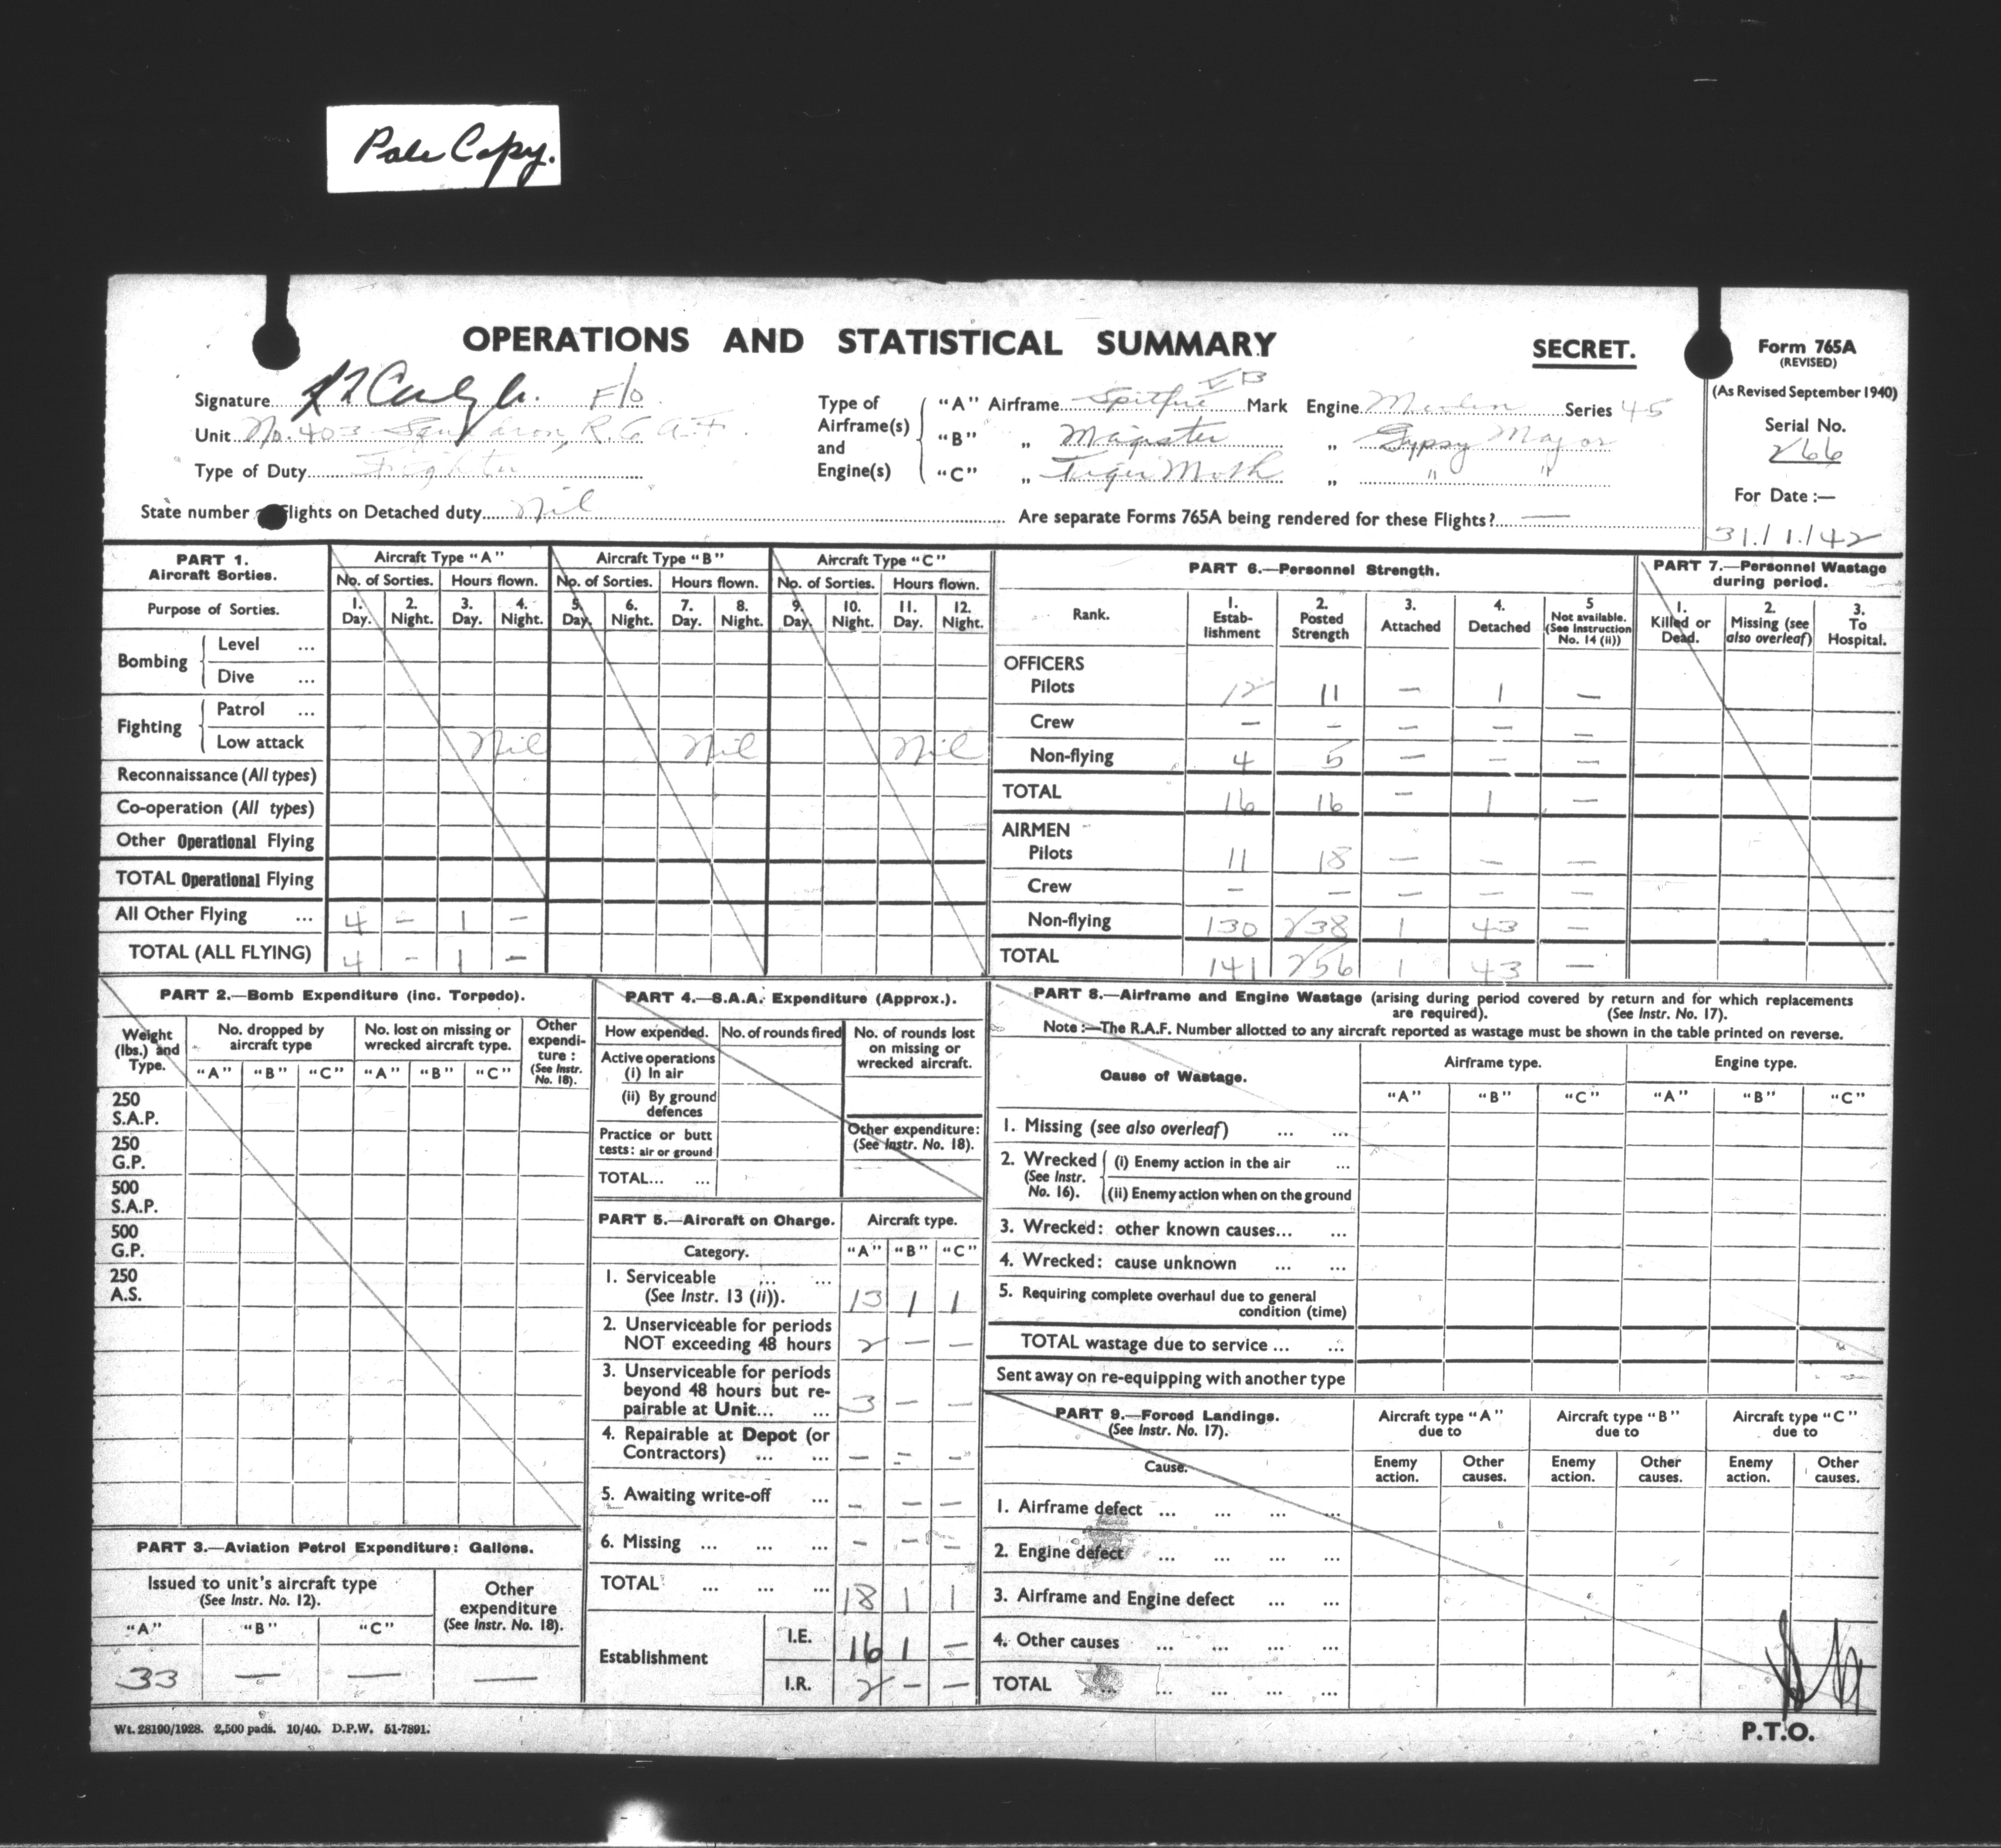 Pale Copy.
OPERATIONS AND STATISTICAL SUMMARY
SECRET.
Form 765A
(REVISED)
(As Revised September 1940)
Serial No.
266
For Date :—
31/1/42
Signature F/O.
Unit No. 403 Squadron, R.C.A.F.
Type of Duty Fighter
State number of Flights on Detached duty Nil
Type of Airframe(s) and Engine(s)
"A" Airframe Spitfire VB Mark Engine Merlin Series 45
"B" „ Magister „ Gypsy Major
"C" „ Tiger Moth „ " "
Are separate Forms 765A being rendered for these Flights? —
PART 1.
Aircraft Sorties.
Aircraft Type "A" Aircraft Type "B" Aircraft Type "C"
No. of Sorties. Hours flown. No. of Sorties. Hours flown. No. of Sorties. Hours flown.
Purpose of Sorties.
1. Day. 2. Night. 3. Day. 4. Night. 5. Day. 6. Night. 7. Day. 8. Night. 9. Day. 10. Night. 11. Day. 12. Night.
Bombing
Level ...
Dive ...
Fighting
Patrol ...
Low attack Nil Nil Nil
Reconnaissance (All types)
Co-operation (All types)
Other Operational Flying
TOTAL Operational Flying
All Other Flying ... 4 – 1 –
TOTAL (ALL FLYING) 4 – 1 –
PART 6.—Personnel Strength.
Rank. 1. Establishment 2. Posted Strength 3. Attached 4. Detached 5 Not available. (See Instruction No. 14 (ii))
OFFICERS
Pilots 12 11 – 1 –
Crew – – – – –
Non-flying 4 5 – – –
TOTAL 16 16 – 1 –
AIRMEN
Pilots 11 18 – – –
Crew – – – – –
Non-flying 130 238 1 43 –
TOTAL 141 256 1 43 –
PART 7.—Personnel Wastage during period.
1. Killed or Dead. 2. Missing (see also overleaf) 3. To Hospital.
PART 2.—Bomb Expenditure (inc. Torpedo).
Weight (lbs.) and Type.
No. dropped by aircraft type
No. lost on missing or wrecked aircraft type.
Other expenditure : (See Instr. No. 18).
"A" "B" "C" "A" "B" "C"
250 S.A.P.
250 G.P.
500 S.A.P.
500 G.P.
250 A.S.
PART 3.—Aviation Petrol Expenditure: Gallons.
Issued to unit's aircraft type
(See Instr. No. 12).
Other expenditure (See Instr. No. 18).
"A" "B" "C"
33 — — —
PART 4.—S.A.A. Expenditure (Approx.).
How expended. No. of rounds fired No. of rounds lost on missing or wrecked aircraft.
Active operations
(i) In air
(ii) By ground defences
Practice or butt tests: air or ground
Other expenditure: (See Instr. No. 18).
TOTAL... ...
PART 5.—Aircraft on Charge. Aircraft type.
Category. "A" "B" "C"
1. Serviceable ... ...
(See Instr. 13 (ii)). 13 1 1
2. Unserviceable for periods
NOT exceeding 48 hours 2 – –
3. Unserviceable for periods
beyond 48 hours but re-
pairable at Unit... ... 3 – –
4. Repairable at Depot (or
Contractors) ... ... – – –
5. Awaiting write-off ... – – –
6. Missing ... ... ... – – –
TOTAL ... ... ... 18 1 1
Establishment
I.E. 16 1 –
I.R. 2 – –
PART 8.—Airframe and Engine Wastage (arising during period covered by return and for which replacements
are required). (See Instr. No. 17).
Note :—The R.A.F. Number allotted to any aircraft reported as wastage must be shown in the table printed on reverse.
Cause of Wastage. Airframe type. Engine type.
"A" "B" "C" "A" "B" "C"
1. Missing (see also overleaf) ... ...
2. Wrecked (See Instr. No. 16).
(i) Enemy action in the air ...
(ii) Enemy action when on the ground
3. Wrecked: other known causes... ...
4. Wrecked: cause unknown ... ...
5. Requiring complete overhaul due to general
condition (time)
TOTAL wastage due to service ... ...
Sent away on re-equipping with another type
PART 9.—Forced Landings.
(See Instr. No. 17).
Aircraft type "A" due to Aircraft type "B" due to Aircraft type "C" due to
Cause. Enemy action. Other causes. Enemy action. Other causes. Enemy action. Other causes.
1. Airframe defect ... ... ... ...
2. Engine defect ... ... ... ...
3. Airframe and Engine defect ... ...
4. Other causes ... ... ... ...
TOTAL ... ... ... ...
Wt. 28190/1928. 2,500 pads. 10/40. D.P.W. 51-7891.
P.T.O.